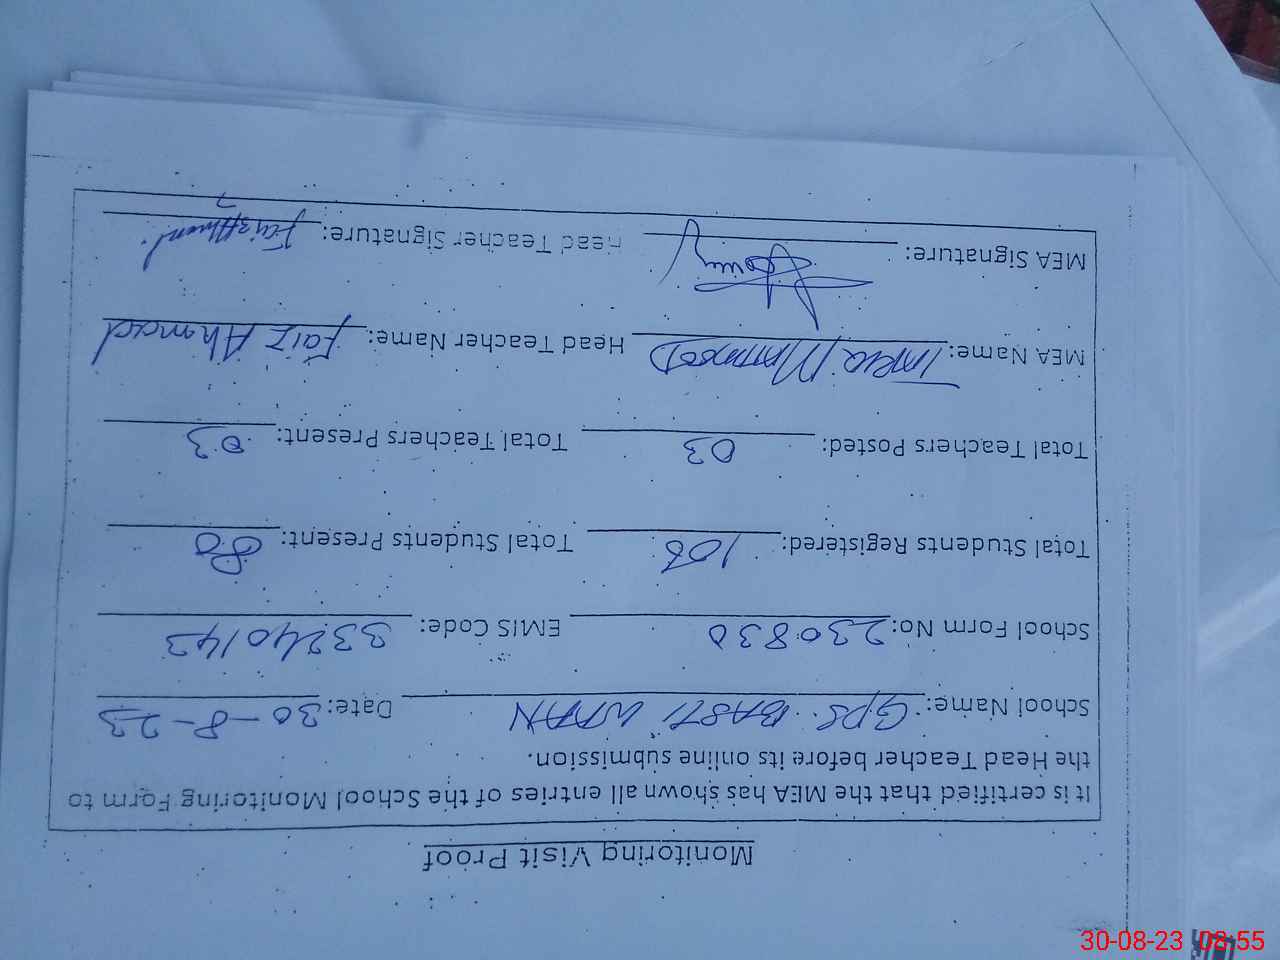 Monitoring Visit Proof
It is certified that the MEA has shown all entries of the School Monitoring Form to
the Head Teacher before its online submission.
School Name: GPS. BASTI Date: 30-8-23
School Form No: 230830 EMIS Code: 33240143
Total Students Registered: Total Students Present: 80
Total Teachers Posted: 03 Total Teachers Present: 03
MEA Name: TARIQ MAHMOOD Head Teacher Name: Faiz Ahmad
MEA Signature: Head Teacher Signature:
30-08-23 08:55